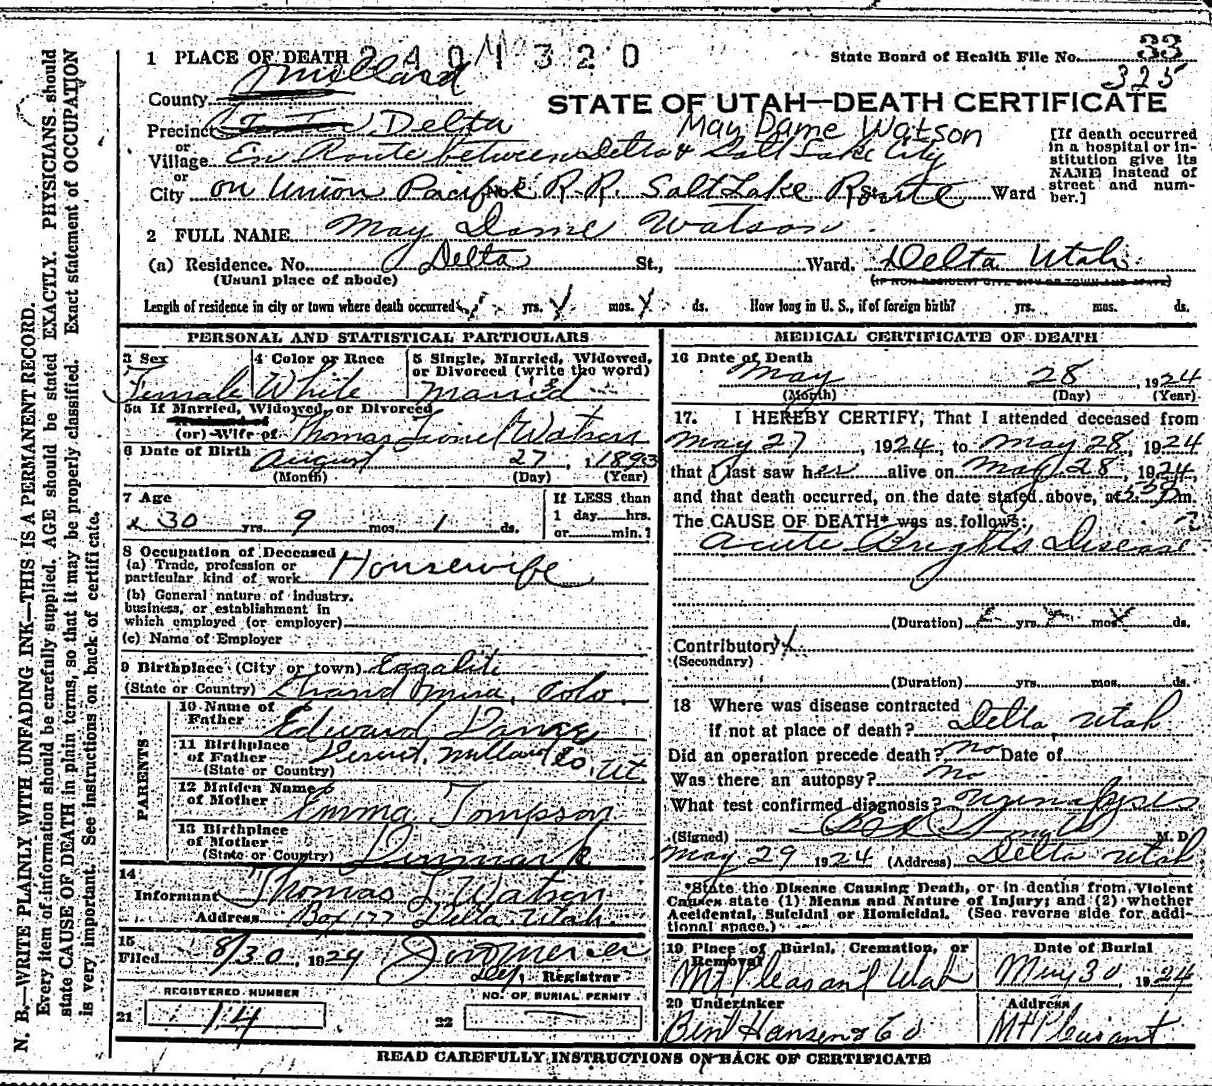 1 PLACE OF DEATH 2401320
State Board of Health File No. 33
325
County Millard
STATE OF UTAH—DEATH CERTIFICATE
Precinct Delta
May Dame Watson
or
Village En Route between Delta & Salt Lake City
or
City on Union Pacific R.R. Salt Lake Route Ward
[If death occurred
in a hospital or in-
stitution give its
NAME instead of
street and num-
ber.]
2 FULL NAME May Dame Watson
(a) Residence. No. Delta St., Ward. Delta Utah
(Usual place of abode) (IF NON-RESIDENT GIVE CITY OR TOWN AND STATE)
Length of residence in city or town where death occurred yrs. mos. ds. How long in U. S., if of foreign birth? yrs. mos. ds.
PERSONAL AND STATISTICAL PARTICULARS
3 Sex 4 Color or Race 5 Single, Married, Widowed,
or Divorced (write the word)
Female White Married
5a If Married, Widowed, or Divorced
(or) Wife of Thomas Lionel Watson
6 Date of Birth August 27, 1893
(Month) (Day) (Year)
7 Age If LESS than
1 day hrs.
or min.?
30 yrs. 9 mos. 1 ds.
8 Occupation of Deceased
(a) Trade, profession or
particular kind of work Housewife
(b) General nature of industry,
business, or establishment in
which employed (or employer)
(c) Name of Employer
9 Birthplace (City or town)
(State or Country) Colo.
PARENTS
10 Name of
Father Edward Dame
11 Birthplace
of Father Deseret, Millard Co. Ut
(State or Country)
12 Maiden Name
of Mother Emma Tompson
13 Birthplace
of Mother
(State or Country) Denmark
14
Informant Thomas L Watson
Address Box 177 Delta Utah
15
Filed 8/30, 1924
Dep. Registrar
REGISTERED NUMBER
21 14
NO. OF BURIAL PERMIT
22
MEDICAL CERTIFICATE OF DEATH
16 Date of Death
May 28, 1924
(Month) (Day) (Year)
17. I HEREBY CERTIFY, That I attended deceased from
May 27, 1924, to May 28, 1924
that I last saw her alive on May 28, 1924,
and that death occurred, on the date stated above, at m.
The CAUSE OF DEATH* was as follows:
Acute Brights Disease
(Duration) yrs. mos. ds.
Contributory
(Secondary)
(Duration) yrs. mos. ds.
18 Where was disease contracted
if not at place of death? Delta Utah
Did an operation precede death? No Date of
Was there an autopsy? No
What test confirmed diagnosis?
(Signed) M. D.
May 29 1924 (Address) Delta Utah
*State the Disease Causing Death, or in deaths from Violent
Causes state (1) Means and Nature of Injury; and (2) whether
Accidental, Suicidal or Homicidal. (See reverse side for addi-
tional space.)
19 Place of Burial, Cremation, or
Removal
Mt Pleasant Utah
Date of Burial
May 30 1924
20 Undertaker
Address
Hansen & Co
Mt Pleasant
READ CAREFULLY INSTRUCTIONS ON BACK OF CERTIFICATE
N. B.—WRITE PLAINLY WITH UNFADING INK—THIS IS A PERMANENT RECORD.
Every item of information should be carefully supplied. AGE should be stated EXACTLY. PHYSICIANS should
state CAUSE OF DEATH in plain terms, so that it may be properly classified. Exact statement of OCCUPATION
is very important. See instructions on back of certificate.